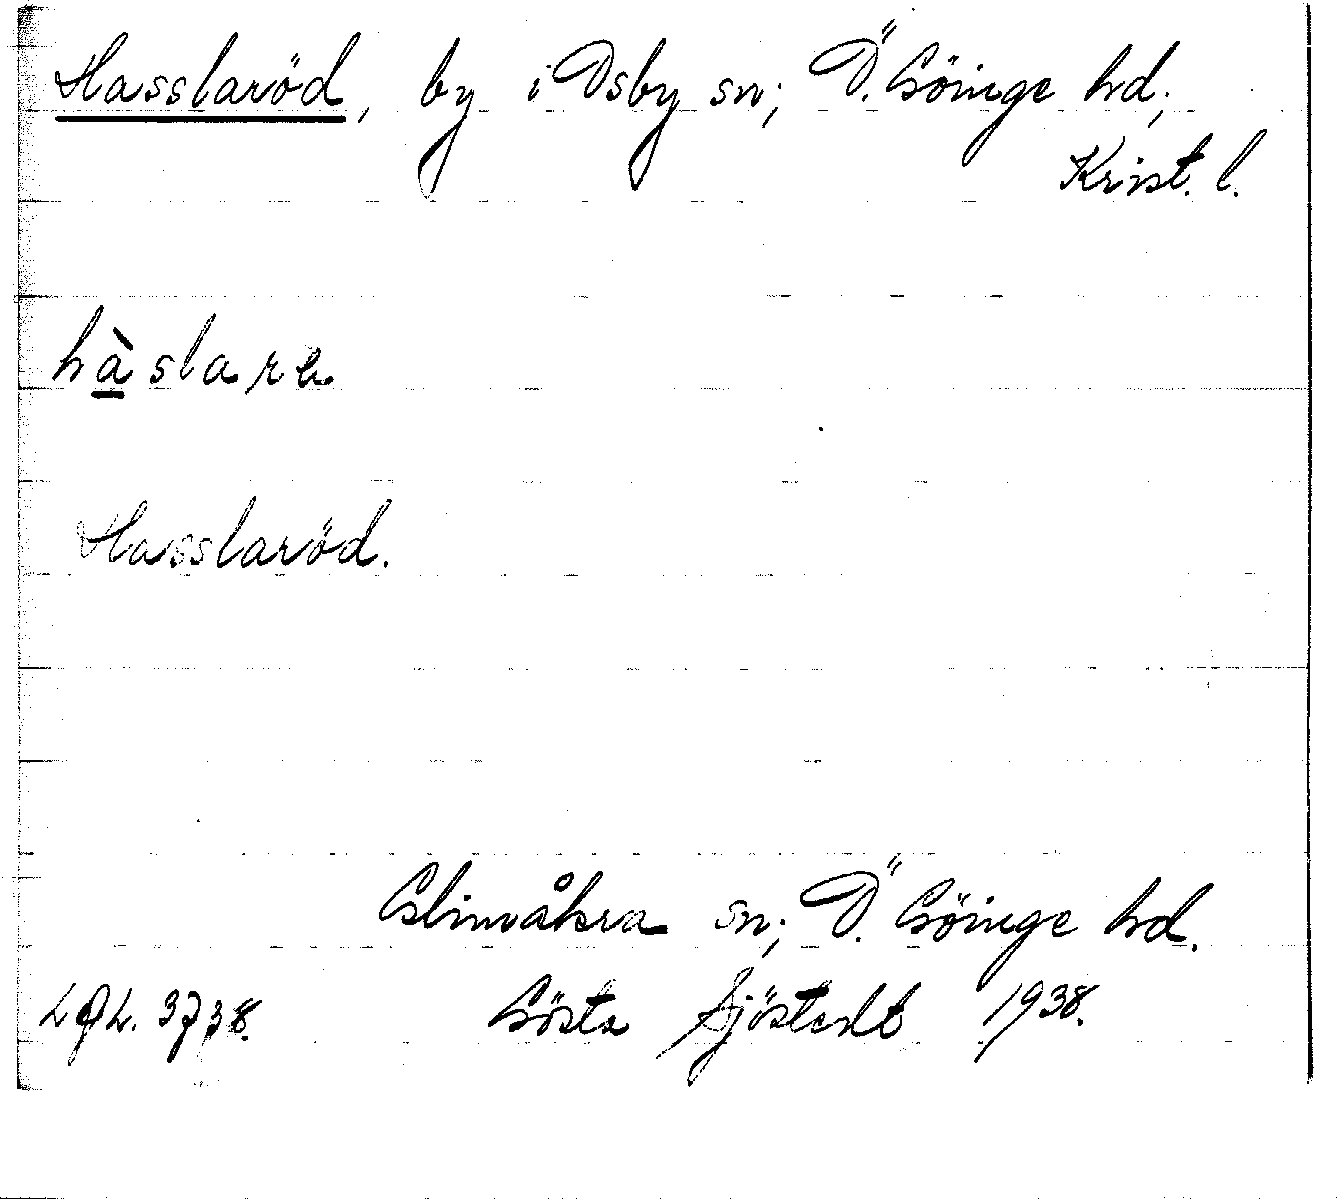 Hasslaröd, by i Osby sn; Ö. Göinge hd;
Krist. l.
hàslara
Hasslaröd.
Glimåkra sn; Ö. Göinge hd.
3738. Gösta Sjöstedt 1938.